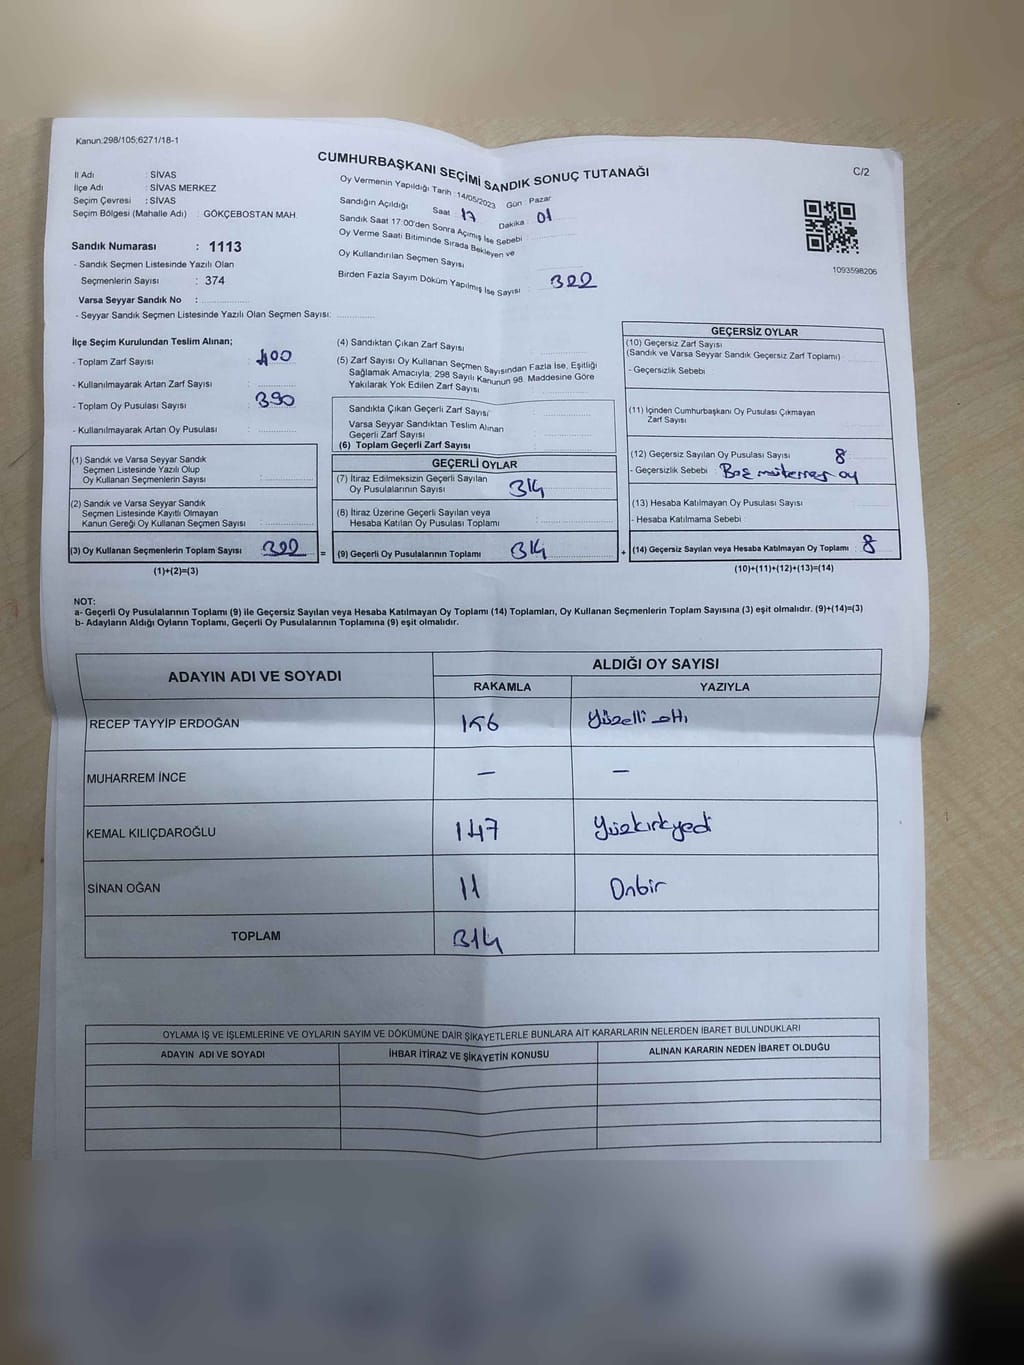 Kanun:298/105;6271/18-1
CUMHURBAŞKANI SEÇİMİ SANDIK SONUÇ TUTANAĞI
C/2
İl Adı : SİVAS
İlçe Adı : SİVAS MERKEZ
Seçim Çevresi : SİVAS
Seçim Bölgesi (Mahalle Adı) : GÖKÇEBOSTAN MAH.
Oy Vermenin Yapıldığı Tarih :14/05/2023 Gün : Pazar
Sandığın Açıldığı Saat : 17 Dakika : 01
Sandık Saat 17:00'den Sonra Açılmış İse Sebebi :
Oy Verme Saati Bitiminde Sırada Bekleyen ve
Oy Kullandırılan Seçmen Sayısı :
Birden Fazla Sayım Döküm Yapılmış İse Sayısı : 322
1093598206
Sandık Numarası : 1113
- Sandık Seçmen Listesinde Yazılı Olan
Seçmenlerin Sayısı : 374
Varsa Seyyar Sandık No :
- Seyyar Sandık Seçmen Listesinde Yazılı Olan Seçmen Sayısı:
İlçe Seçim Kurulundan Teslim Alınan;
- Toplam Zarf Sayısı : 400
- Kullanılmayarak Artan Zarf Sayısı :
- Toplam Oy Pusulası Sayısı : 390
- Kullanılmayarak Artan Oy Pusulası :
(1) Sandık ve Varsa Seyyar Sandık
Seçmen Listesinde Yazılı Olup
Oy Kullanan Seçmenlerin Sayısı :
(2) Sandık ve Varsa Seyyar Sandık
Seçmen Listesinde Kayıtlı Olmayan
Kanun Gereği Oy Kullanan Seçmen Sayısı :
(3) Oy Kullanan Seçmenlerin Toplam Sayısı : 322 =
(1)+(2)=(3)
(4) Sandıktan Çıkan Zarf Sayısı :
(5) Zarf Sayısı Oy Kullanan Seçmen Sayısından Fazla İse, Eşitliği
Sağlamak Amacıyla; 298 Sayılı Kanunun 98. Maddesine Göre
Yakılarak Yok Edilen Zarf Sayısı :
Sandıkta Çıkan Geçerli Zarf Sayısı :
Varsa Seyyar Sandıktan Teslim Alınan
Geçerli Zarf Sayısı :
(6) Toplam Geçerli Zarf Sayısı
GEÇERLİ OYLAR
(7) İtiraz Edilmeksizin Geçerli Sayılan
Oy Pusulalarının Sayısı : 314
(8) İtiraz Üzerine Geçerli Sayılan veya
Hesaba Katılan Oy Pusulası Toplamı :
(9) Geçerli Oy Pusulalarının Toplamı : 314 +
GEÇERSİZ OYLAR
(10) Geçersiz Zarf Sayısı
(Sandık ve Varsa Seyyar Sandık Geçersiz Zarf Toplamı) :
- Geçersizlik Sebebi
(11) İçinden Cumhurbaşkanı Oy Pusulası Çıkmayan
Zarf Sayısı :
(12) Geçersiz Sayılan Oy Pusulası Sayısı : 8
- Geçersizlik Sebebi : Boş oy
(13) Hesaba Katılmayan Oy Pusulası Sayısı :
- Hesaba Katılmama Sebebi
(14) Geçersiz Sayılan veya Hesaba Katılmayan Oy Toplamı : 8
(10)+(11)+(12)+(13)=(14)
NOT:
a- Geçerli Oy Pusulalarının Toplamı (9) ile Geçersiz Sayılan veya Hesaba Katılmayan Oy Toplamı (14) Toplamları, Oy Kullanan Seçmenlerin Toplam Sayısına (3) eşit olmalıdır. (9)+(14)=(3)
b- Adayların Aldığı Oyların Toplamı, Geçerli Oy Pusulalarının Toplamına (9) eşit olmalıdır.
ADAYIN ADI VE SOYADI ALDIĞI OY SAYISI
RAKAMLA YAZIYLA
RECEP TAYYİP ERDOĞAN 156 Yüzelli altı
MUHARREM İNCE — —
KEMAL KILIÇDAROĞLU 147 Yüzkırkyedi
SİNAN OĞAN 11 Onbir
TOPLAM 314
OYLAMA İŞ VE İŞLEMLERİNE VE OYLARIN SAYIM VE DÖKÜMÜNE DAİR ŞİKAYETLERLE BUNLARA AİT KARARLARIN NELERDEN İBARET BULUNDUKLARI
ADAYIN ADI VE SOYADI İHBAR İTİRAZ VE ŞİKAYETİN KONUSU ALINAN KARARIN NEDEN İBARET OLDUĞU